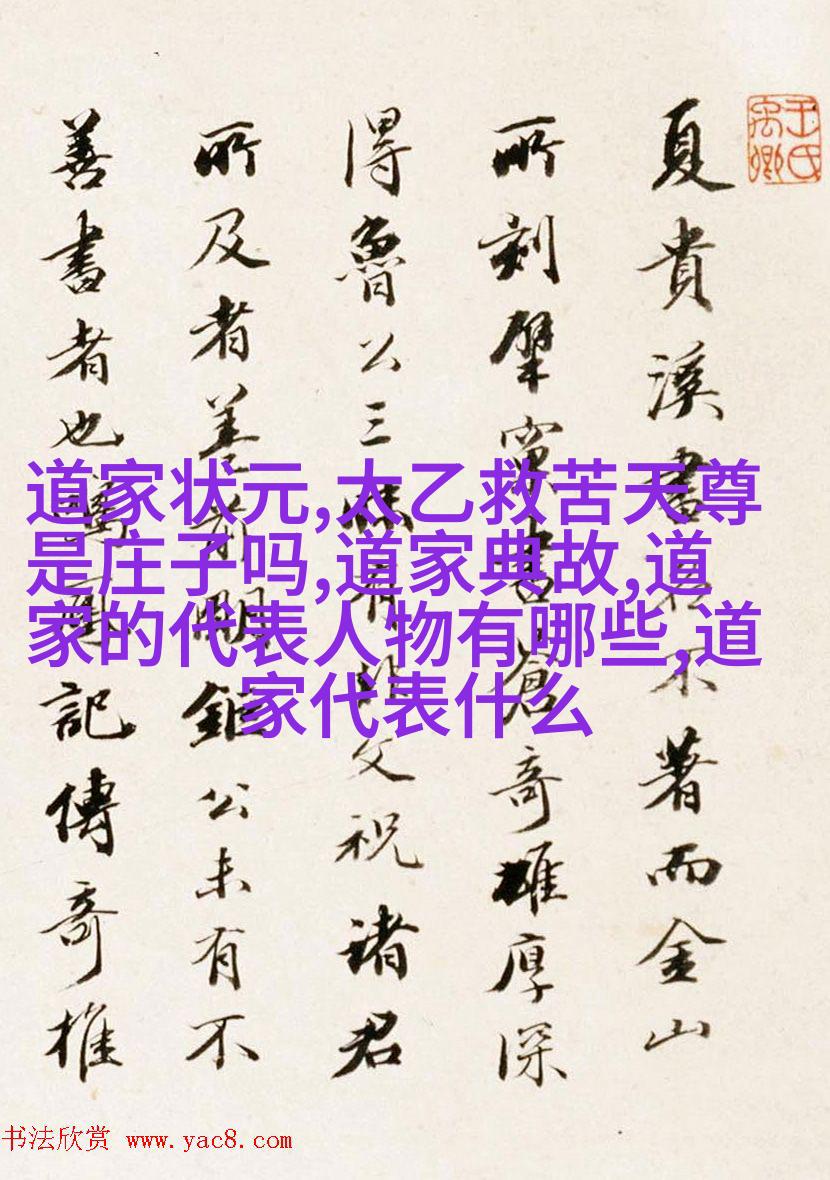 夏貴溪書名不著而金山
所刻擘窠書蒼奇雄厚深
得魯公三昧有非文祝諸君
所及者蓋前明鉅公未有不
善書者也
記傳奇推
道家状元,太乙救苦天尊
是庄子吗,道家典故,道
家的代表人物有哪些,道
家代表什么
王氏禹卿
书法欣赏 www.yac8.com